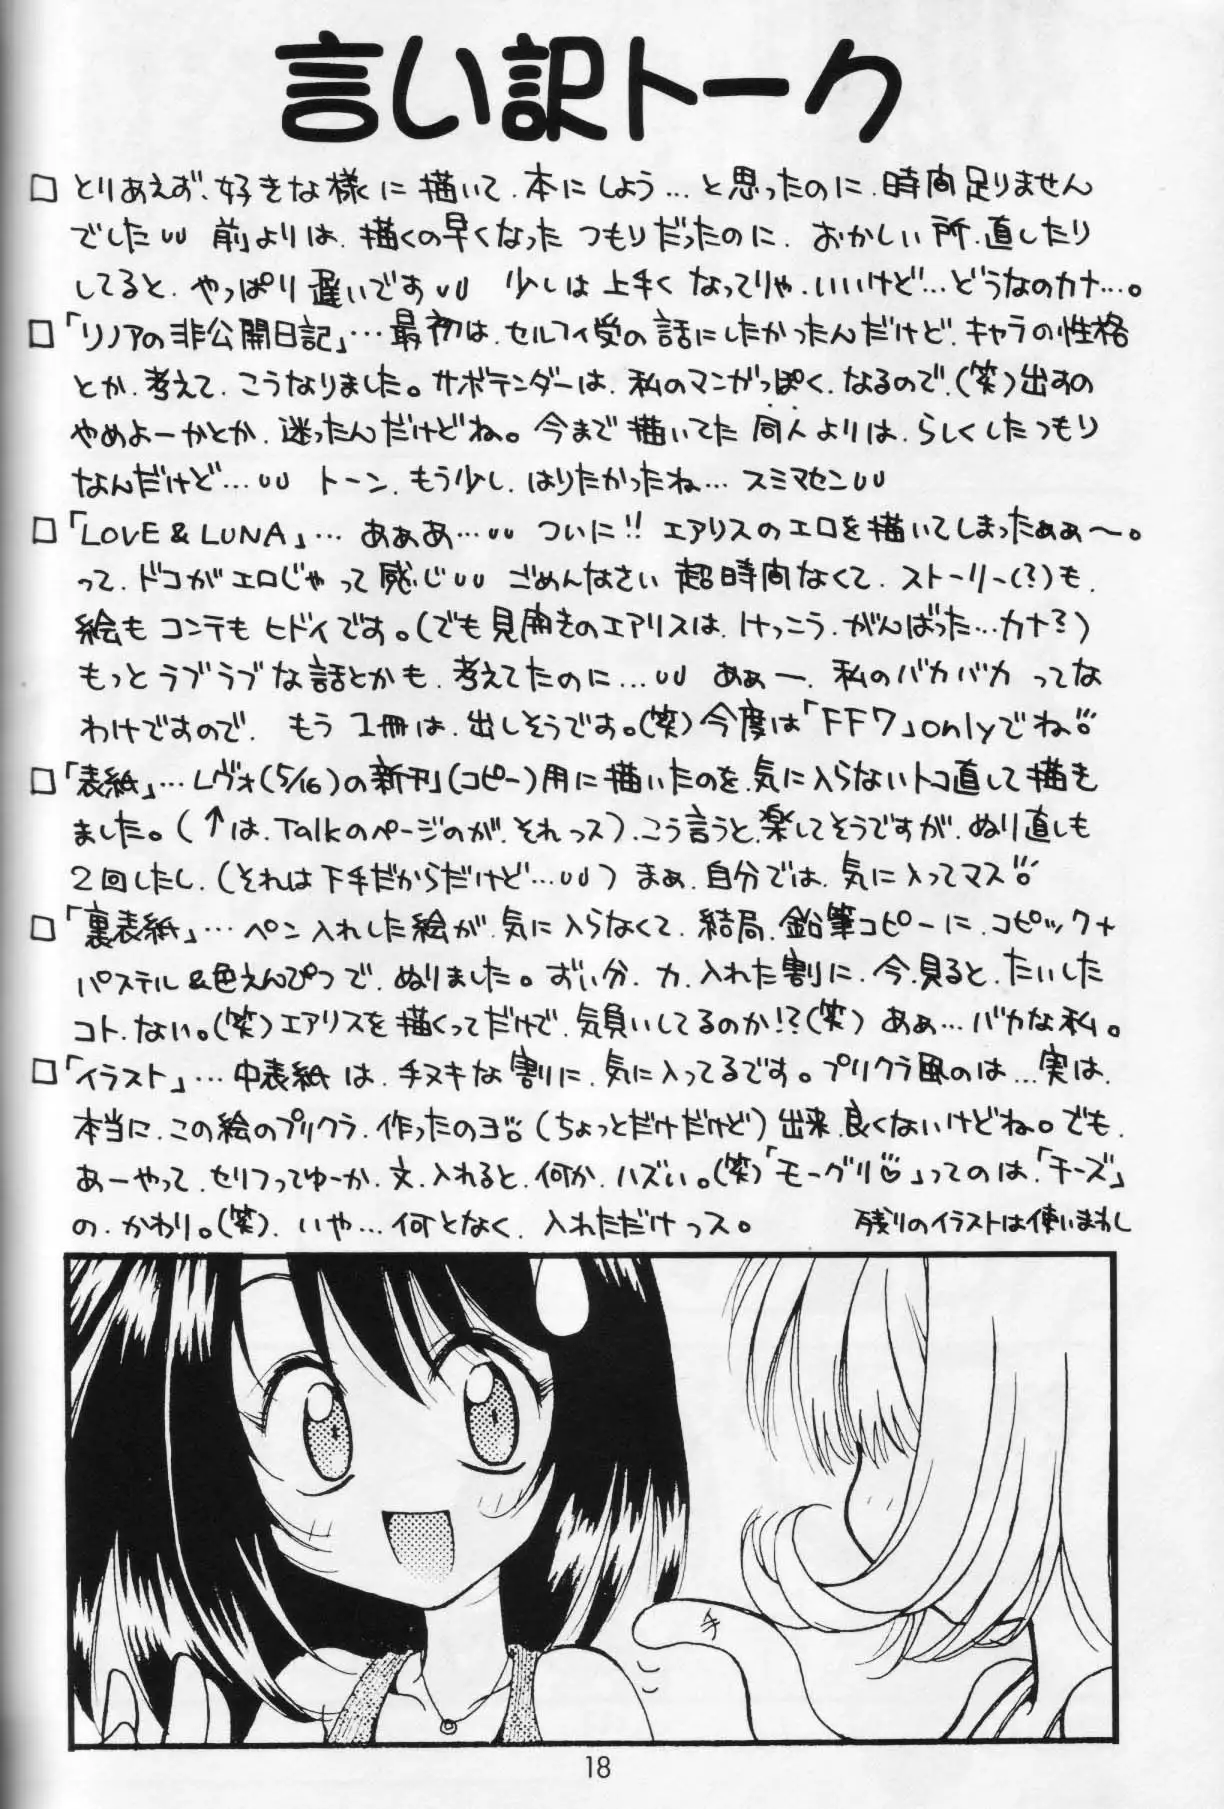 言い訳トーク
□ とりあえず、好きな様に描いて、本にしよう…と思ったのに、時間足りません
でしたUU 前よりは、描くの早くなったつもりだったのに、おかしい所、直したり
してると、やっぱり遅いですUU 少しは上手くなってりゃ、いいけど…どうなのカナ…。
□「リノアの非公開日記」…最初は、セルフィ受の話にしたかったんだけど、キャラの性格
とか、考えて、こうなりました。サボテンダーは、私のマンガっぽく、なるので、(笑)出すの
やめよーかとか、迷ったんだけどね。今まで描いてた同人よりは、らしくしたつもり
なんだけど…UU トーン、もう少し、はりたかったね…スミマセンUU
□「LOVE & LUNA」…あぁあ…UU ついに!! エアリスのエロを描いてしまったぁぁ〜。
って、ドコがエロじゃって感じUU ごめんなさい 超時間なくて、ストーリー(?)も、
絵もコンテもヒドイです。(でも見開きのエアリスは、けっこう、がんばった…カナ?)
もっとラブラブな話とかも、考えてたのに…UU あぁー、私のバカバカってな
わけですので、もう1冊は、出しそうです。(笑)今度は「FF7」onlyでね
□「表紙」…レヴォ(5/16)の新刊(コピー)用に描いたのを、気に入らないトコ直して描き
ました。(↑は、Talkのページのが、それっス)、こう言うと、楽してそうですが、ぬり直しも
2回したし、(それは下手だからだけど…UU) まぁ、自分では、気に入ってマス
□「裏表紙」…ペン入れした絵が、気に入らなくて、結局、鉛筆コピーに、コピック+
パステル&色えんぴつで、ぬりました。ずいぶん、力、入れた割に、今、見ると、たいした
コト、ない。(笑)エアリスを描くってだけで、気負いしてるのか!?(笑) あぁ…バカな私。
□「イラスト」…中表紙は、手ヌキな割に、気に入ってるです。プリクラ風のは…実は、
本当に、この絵のプリクラ、作ったのヨ (ちょっとだけだけど)出来、良くないけどね。でも、
あーやって、セリフってゆーか、文、入れると、何か、ハズい。(笑)「モーグリ♡」ってのは、「チーズ」
の、かわり。(笑)、いや…何となく、入れただけっス。
残りのイラストは使いまわし
チ
18